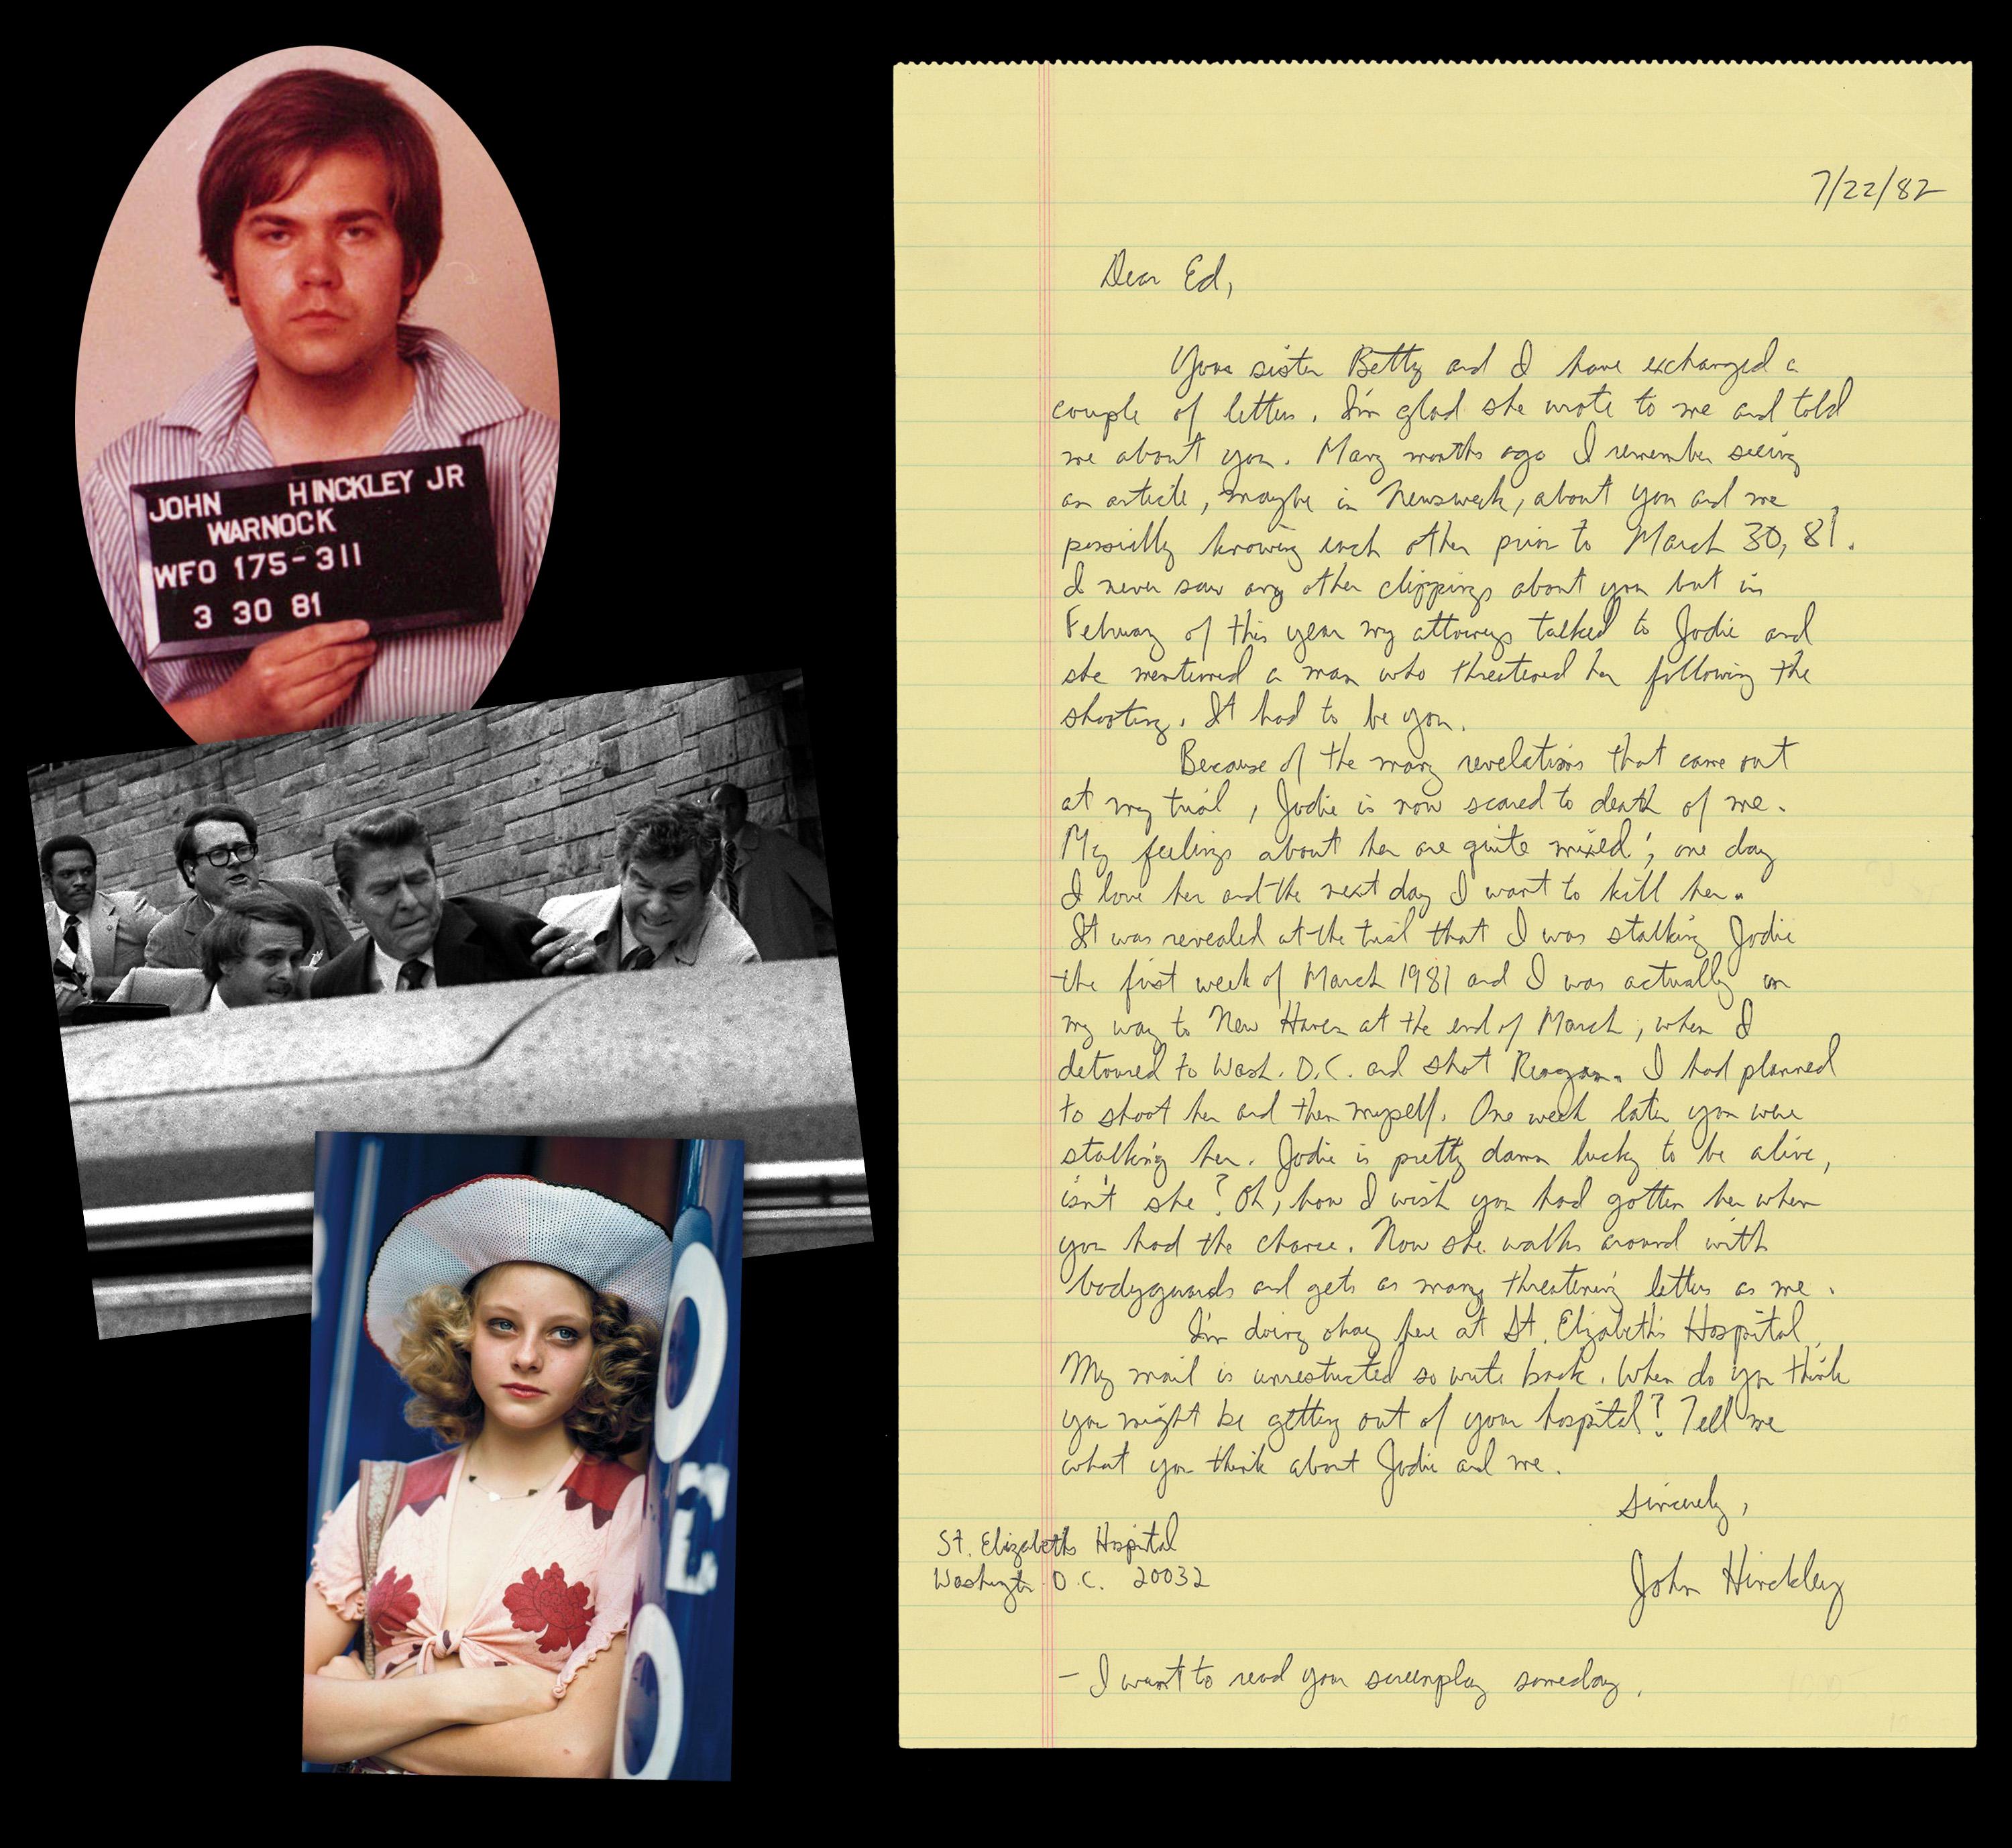 JOHN HINCKLEY JR
WARNOCK
WFO 175-311
3 30 81
7/22/82
Dear Ed,
Your sister Betty and I have exchanged a
couple of letters. I'm glad she wrote to me and told
me about you. Many months ago I remember seeing
an article, maybe in Newsweek, about you and me
possibly knowing each other prior to March 30, 81.
I never saw any other clippings about you but in
February of this year my attorneys talked to Jodie and
she mentioned a man who threatened her following the
shooting. It had to be you.
Because of the many revelations that came out
at my trial, Jodie is now scared to death of me.
My feelings about her are quite mixed; one day
I love her and the next day I want to kill her.
It was revealed at the trial that I was stalking Jodie
the first week of March 1981 and I was actually on
my way to New Haven at the end of March, when I
detoured to Wash. D.C. and shot Reagan. I had planned
to shoot her and then myself. One week later you were
stalking her. Jodie is pretty damn lucky to be alive,
isn't she? Oh, how I wish you had gotten her when
you had the chance. Now she walks around with
bodyguards and gets as many threatening letters as me.
I'm doing okay here at St. Elizabeth's Hospital.
My mail is unrestricted so write back. When do you think
you might be getting out of your hospital? Tell me
what you think about Jodie and me.
Sincerely,
John Hinckley
St. Elizabeths Hospital
Washington D.C. 20032
– I want to read your screenplay someday.